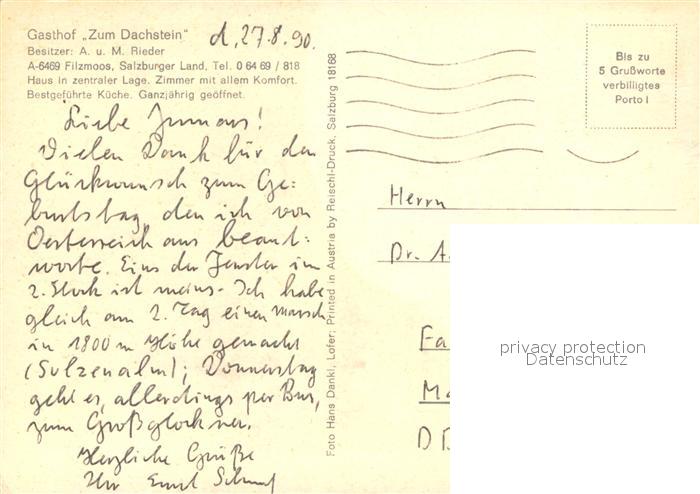 Gasthof „Zum Dachstein"
Besitzer: A. u. M. Rieder
A-6469 Filzmoos, Salzburger Land, Tel. 0 64 69 / 818
Haus in zentraler Lage. Zimmer mit allem Komfort.
Bestgeführte Küche. Ganzjährig geöffnet.
d. 27.8.90.
Liebe
Vielen Dank für den
Glückwunsch zum Ge-
burtstag, den ich von
Oesterreich aus beant-
worte. Eins der Fenster im
2. Stock ist meins. Ich habe
gleich am 2. Tag einen Marsch
in 1800 m Höhe gemacht
(Sulzenalm); Donnerstag
geht es, allerdings per Bus,
zum Großglockner.
Herzliche Grüße
Ihr Ernst
Foto Hans Dankl, Lofer; Printed in Austria by Reischl-Druck, Salzburg 18168
Bis zu
5 Grußworte
verbilligtes
Porto !
Herrn
Dr. A.
Fa
Ma
DD
privacy protection
Datenschutz